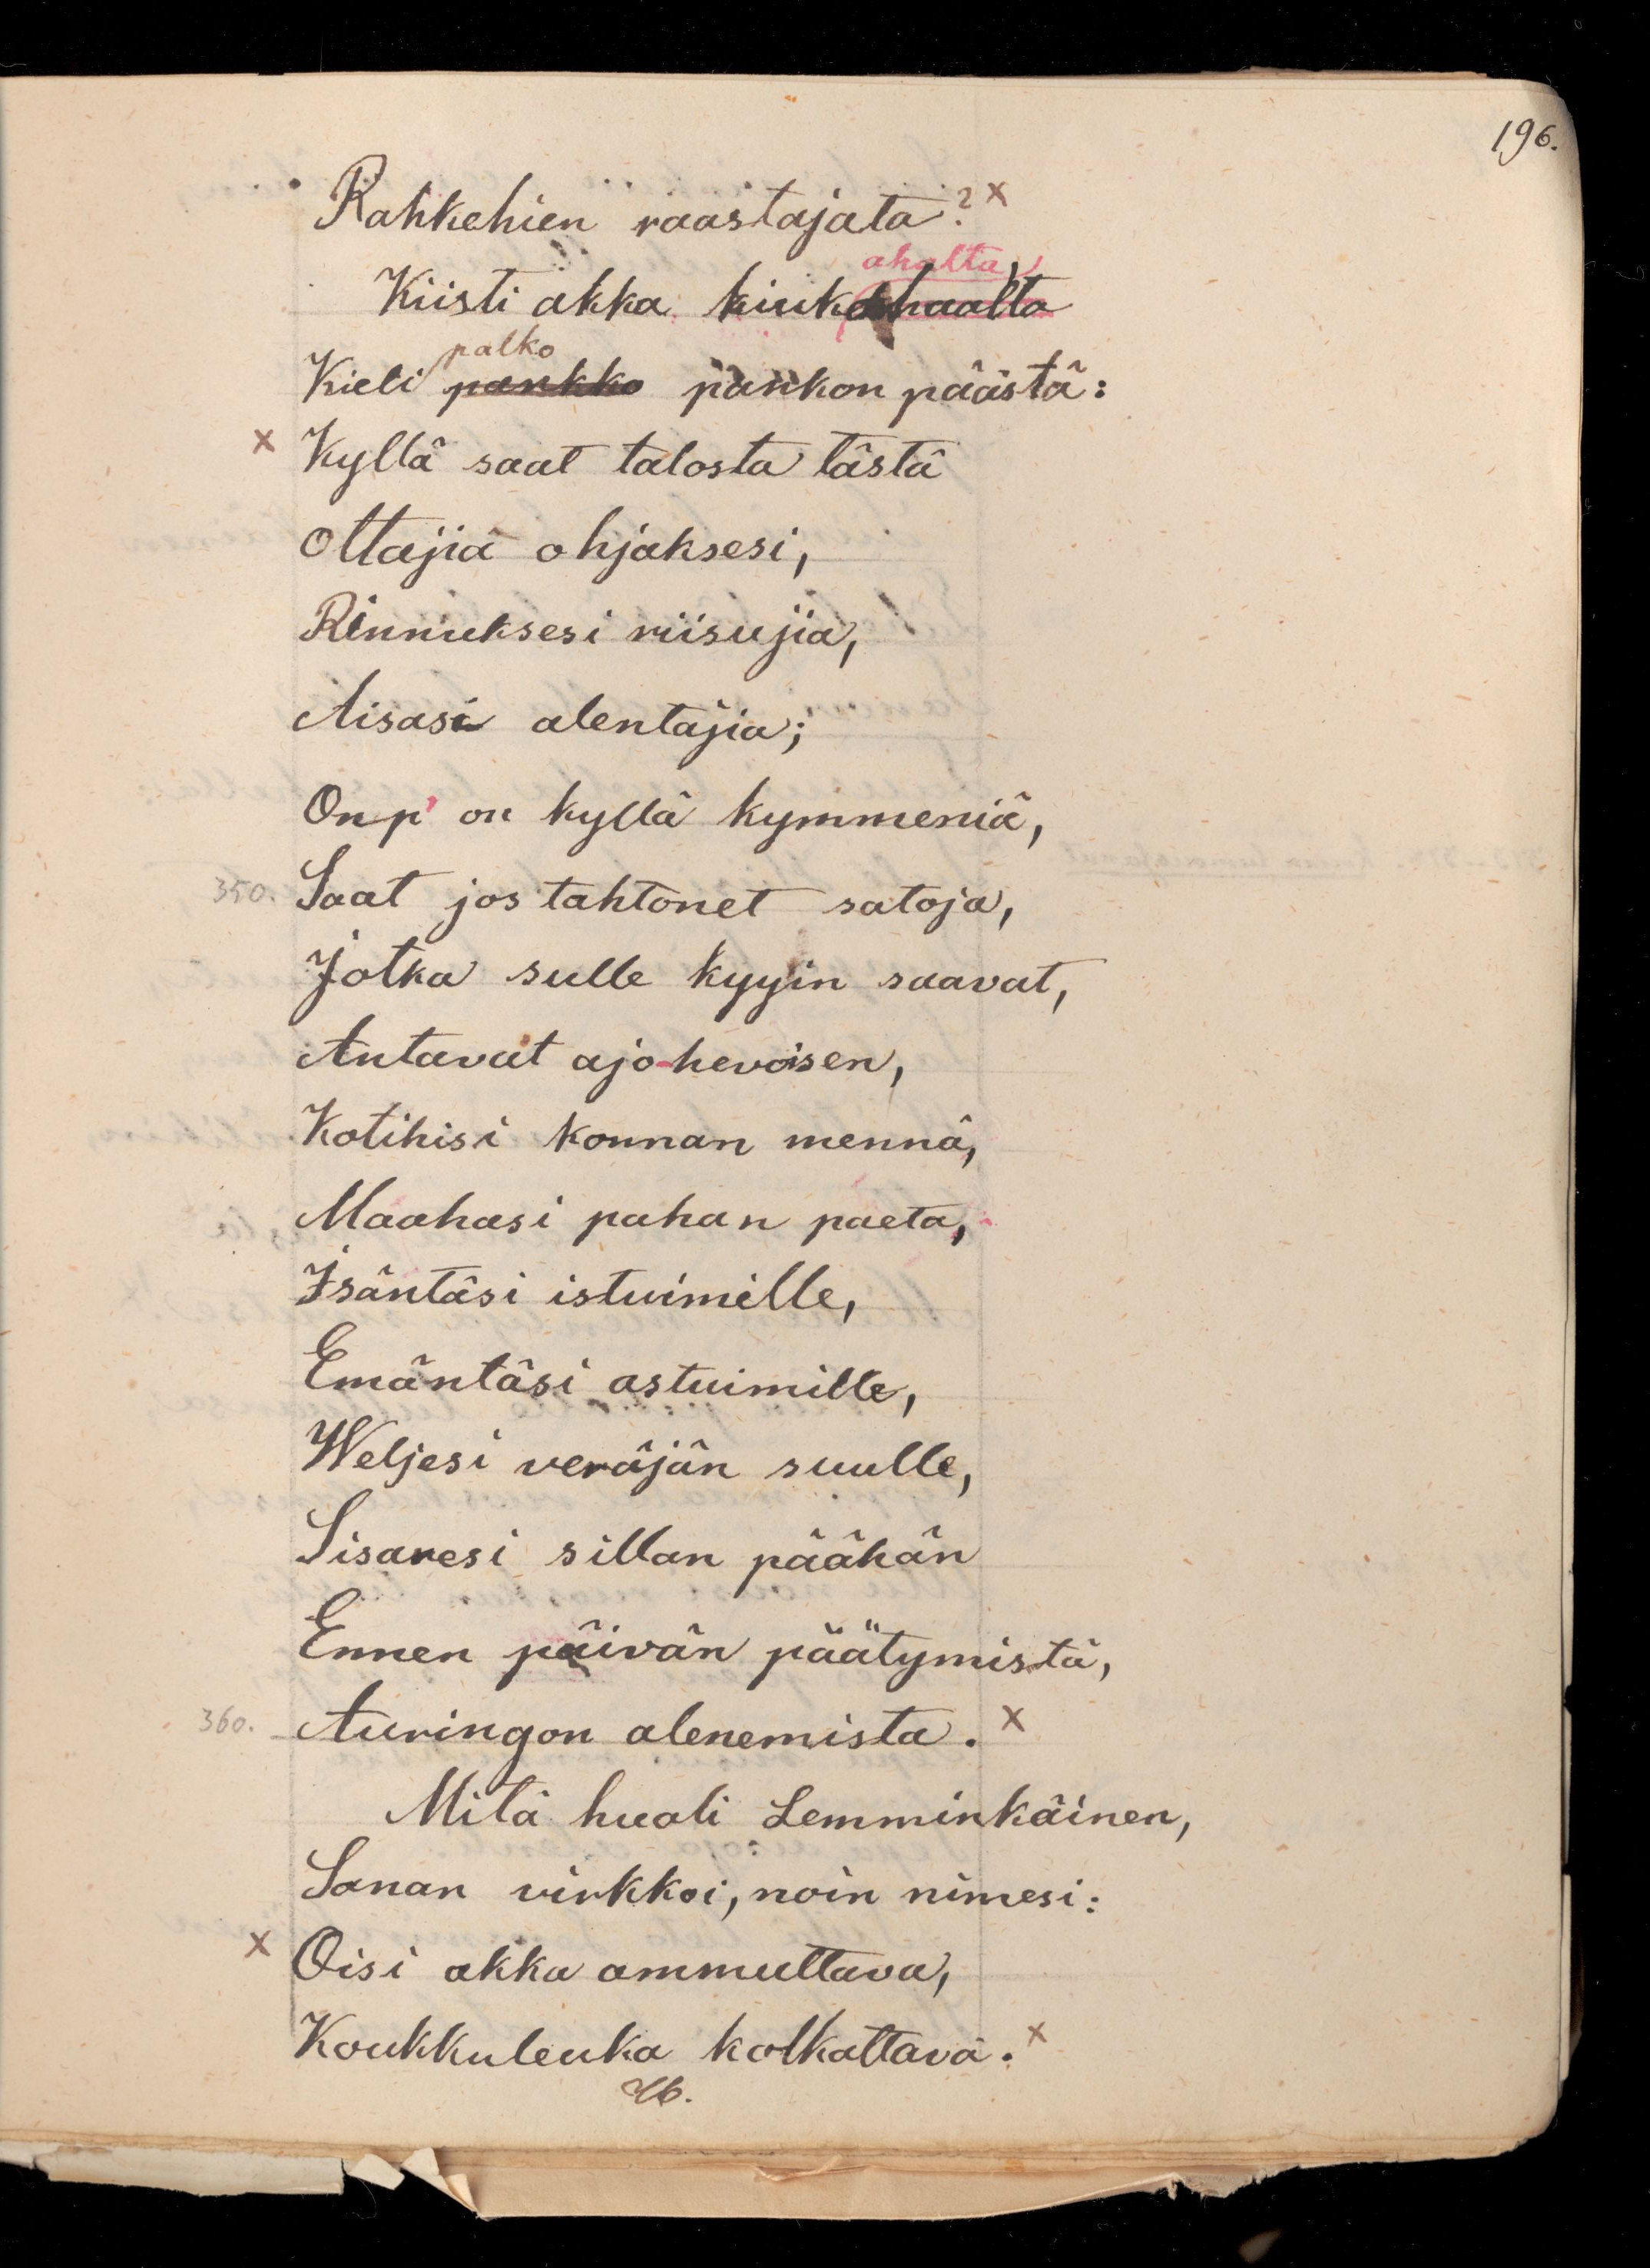 196.
Rahkehien raastajata? x
ahalta,
Kiisti akka kiukohaalta
palko
Kieli pankko pankon päästä:
x Kyllä saat talosta tästä
Ottajia ohjaksesi,
Rinnuksesi riisujia,
Aisasi alentajia;
Onp' on kyllä kymmeniä,
350. Saat jos tahtonet satoja,
Jotka sulle kyyin saavat,
Antavat ajo-hevoisen,
Kotihisi konnan mennä,
Maahasi pahan paeta,
Isäntäsi istuimille,
Emäntäsi astuimille,
Weljesi veräjän suulle,
Sisaresi sillan päähän
Ennen päivän päätymistä,
360. Auringon alenemista. x
Mitä huoli Lemminkäinen,
Sanan virkkoi, noin nimesi:
x Oisi akka ammuttava,
Koukkuleuka kolkattava. x